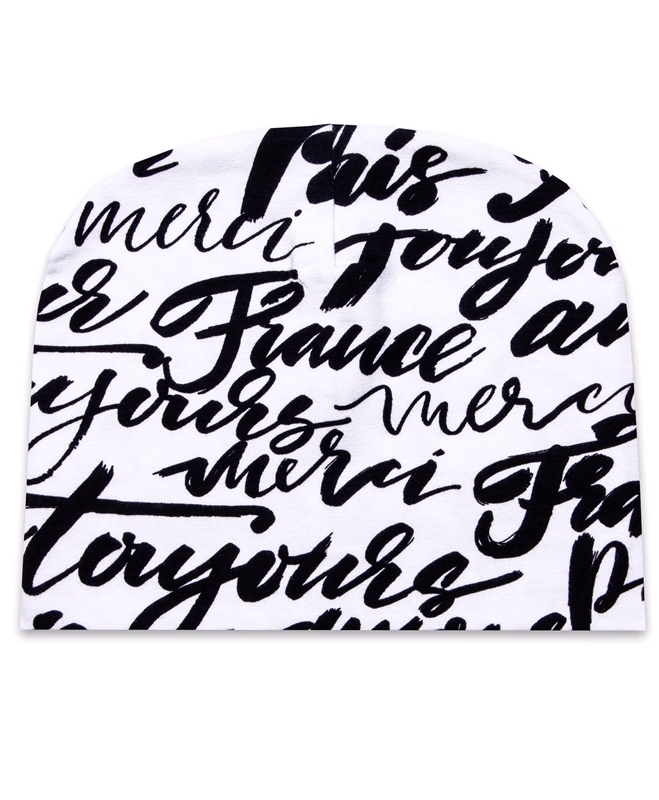 Paris
merci toujou
France
toujours merci
merci Fra
toujours